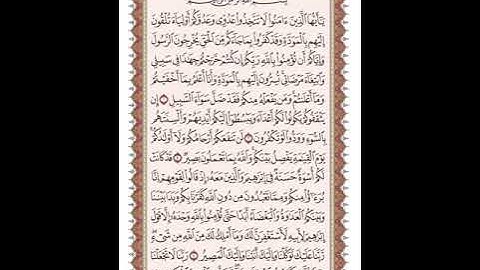 بِسْمِ اللَّهِ الرَّحْمَٰنِ الرَّحِيمِ
يَٰٓأَيُّهَا الَّذِينَ ءَامَنُوا لَا تَتَّخِذُوا عَدُوِّي وَعَدُوَّكُمْ أَوْلِيَآءَ تُلْقُونَ
إِلَيْهِم بِالْمَوَدَّةِ وَقَدْ كَفَرُوا بِمَا جَآءَكُم مِّنَ الْحَقِّ يُخْرِجُونَ الرَّسُولَ
وَإِيَّاكُمْ أَن تُؤْمِنُوا بِاللَّهِ رَبِّكُمْ إِن كُنتُمْ خَرَجْتُمْ جِهَٰدًا فِي سَبِيلِي
وَابْتِغَآءَ مَرْضَاتِي تُسِرُّونَ إِلَيْهِم بِالْمَوَدَّةِ وَأَنَا أَعْلَمُ بِمَآ أَخْفَيْتُمْ
وَمَآ أَعْلَنتُمْ وَمَن يَفْعَلْهُ مِنكُمْ فَقَدْ ضَلَّ سَوَآءَ السَّبِيلِ ١ إِن
يَثْقَفُوكُمْ يَكُونُوا لَكُمْ أَعْدَآءً وَيَبْسُطُوٓا إِلَيْكُمْ أَيْدِيَهُمْ وَأَلْسِنَتَهُم
بِالسُّوٓءِ وَوَدُّوا لَوْ تَكْفُرُونَ ٢ لَن تَنفَعَكُمْ أَرْحَامُكُمْ وَلَآ أَوْلَٰدُكُمْ
يَوْمَ الْقِيَٰمَةِ يَفْصِلُ بَيْنَكُمْ وَاللَّهُ بِمَا تَعْمَلُونَ بَصِيرٌ ٣ قَدْ كَانَتْ
لَكُمْ أُسْوَةٌ حَسَنَةٌ فِيٓ إِبْرَٰهِيمَ وَالَّذِينَ مَعَهُٓ إِذْ قَالُوا لِقَوْمِهِمْ إِنَّا
بُرَءَٰٓؤُا مِنكُمْ وَمِمَّا تَعْبُدُونَ مِن دُونِ اللَّهِ كَفَرْنَا بِكُمْ وَبَدَا بَيْنَنَا
وَبَيْنَكُمُ الْعَدَٰوَةُ وَالْبَغْضَآءُ أَبَدًا حَتَّىٰ تُؤْمِنُوا بِاللَّهِ وَحْدَهُٓ إِلَّا قَوْلَ
إِبْرَٰهِيمَ لِأَبِيهِ لَأَسْتَغْفِرَنَّ لَكَ وَمَآ أَمْلِكُ لَكَ مِنَ اللَّهِ مِن شَيْءٍ
رَّبَّنَا عَلَيْكَ تَوَكَّلْنَا وَإِلَيْكَ أَنَبْنَا وَإِلَيْكَ الْمَصِيرُ ٤ رَبَّنَا لَا تَجْعَلْنَا